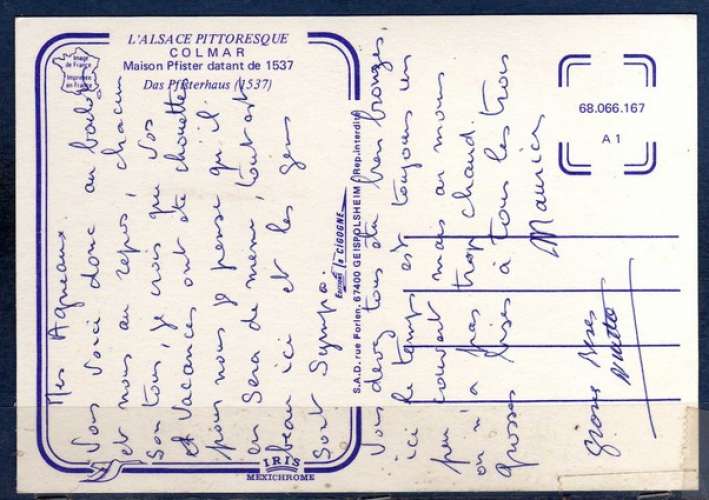 L'ALSACE PITTORESQUE
COLMAR
Maison Pfister datant de 1537
Das Pfisterhaus (1537)
Image
de France
Imprimée
en France
68.066.167
A 1
Éditions la CIGOGNE
S.A.D. rue Forlen, 67400 GEISPOLSHEIM / Rep. interdite
IRIS
MEXICHROME
Mes Agneaux.
Vous voici donc au boulot
et nous au repos, chacun
son tour, je crois que vos
vacances ont été chouettes
pour nous je pense qu'il
en sera de même, tout est
beau ici et les gens
sont sympa.
Vous devez tous être bien bronzés.
ici le temps est toujours un
peu couvert mais au moins
on n'a pas trop chaud.
grosses bises à tous les trois
Maurice
grosses bises